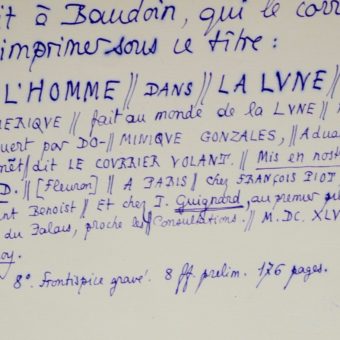 it à Baudoin, qui le corr
imprimer sous ce titre :
L'HOMME // DANS // LA LVNE //
MERIQVE // fait au monde de la LVNE //
uert par DO-// MINIQVE GONZALES, // Adua
dit LE COVRRIER VOLANT. // Mis en nost
D. // [Fleuron] // A PARIS // chez FRANÇOIS PIOT
nt Benoist // Et chez J. Guignard, au premier pil
du Palais, proche les Consultations. // M.DC.XLV
oy.
8°. Frontispice gravé. 8 ff. prelim. 176 pages.